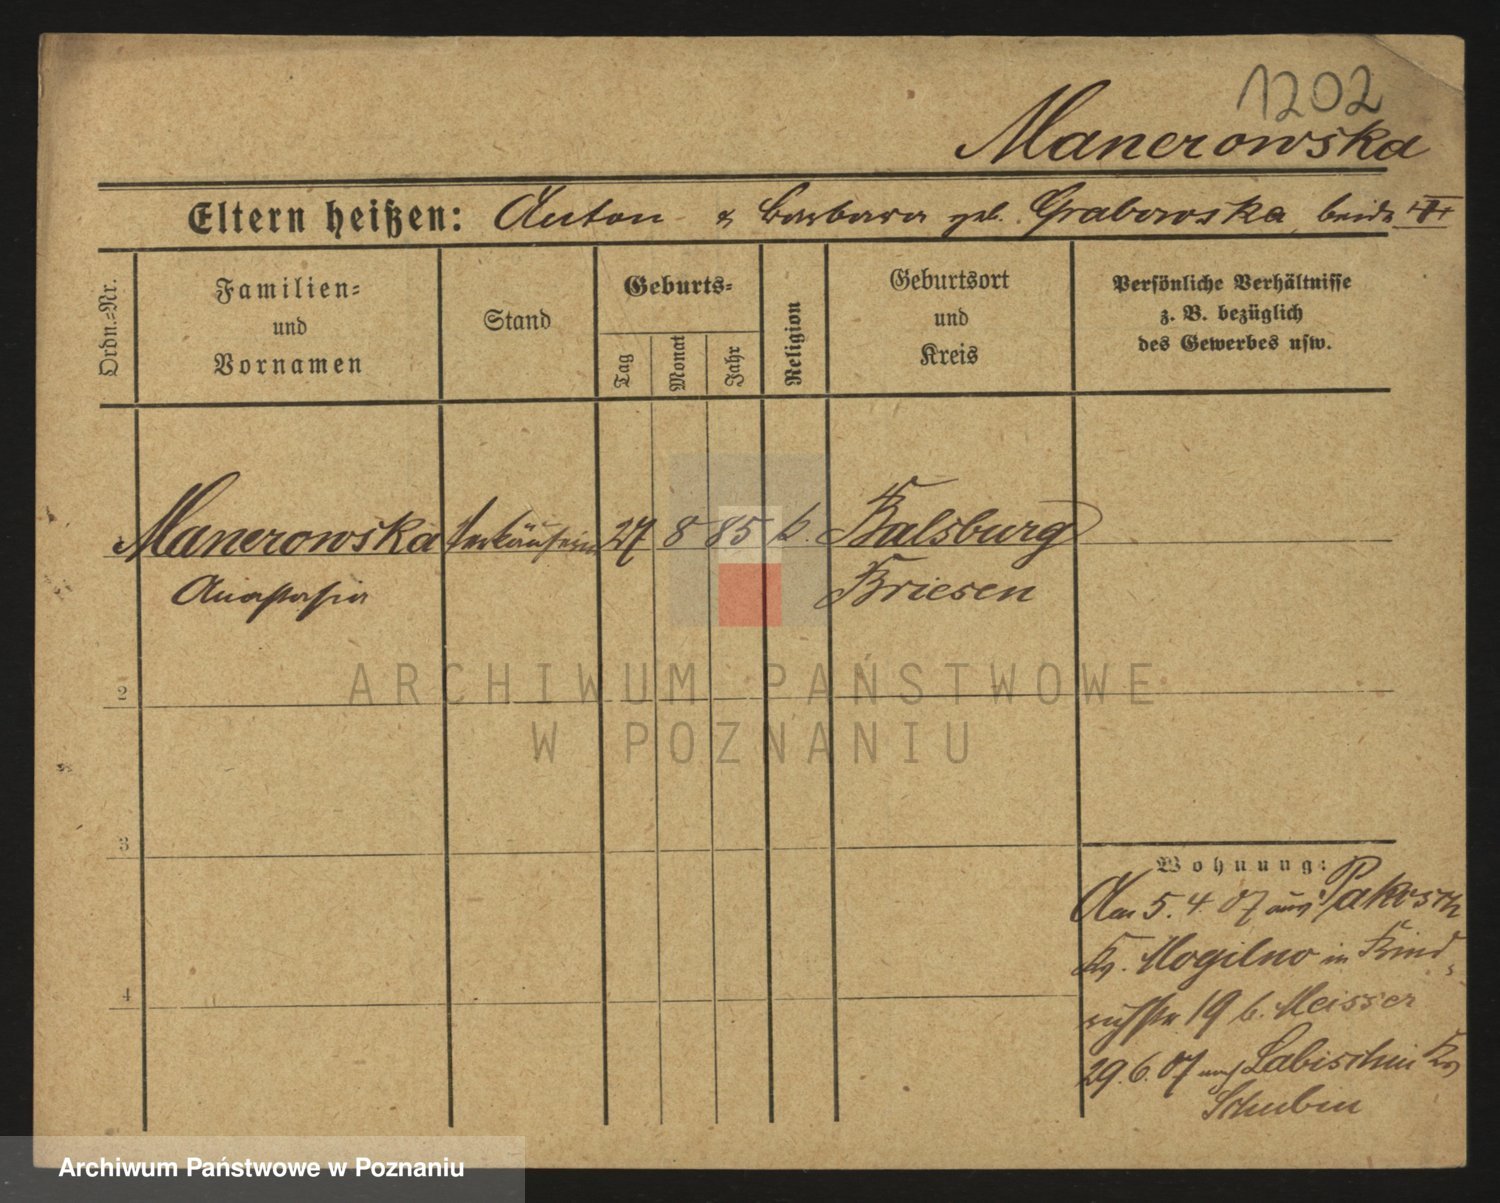 1202
Manerowska
Eltern heißen: Anton & Barbara geb. Grabowska, beide †
Ordn.=Nr.
Familien=
und
Vornamen
Stand
Geburts=
Tag
Monat
Jahr
Religion
Geburtsort
und
Kreis
Persönliche Verhältnisse
z. B. bezüglich
des Gewerbes usw.
Manerowska Verkäuferin 27 8 85 k. Balsburg
Anastasia Briesen
2
3
4
Wohnung:
Am 5.4.07 aus Pakosch
Kr. Mogilno in
19 b. Meisser
29.6.07 nach Labischin Kr
Schubin
ARCHIWUM PAŃSTWOWE
W POZNANIU
Archiwum Państwowe w Poznaniu